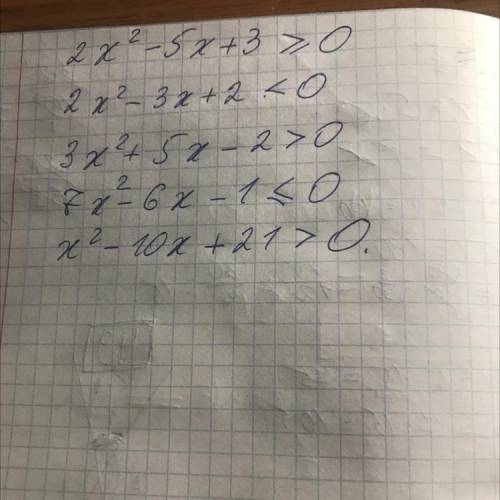 2x² - 5x + 3 ⩾ 0
2x² - 3x + 2 < 0
3x² + 5x - 2 > 0
7x² - 6x - 1 ≤ 0
x² - 10x + 21 > 0.